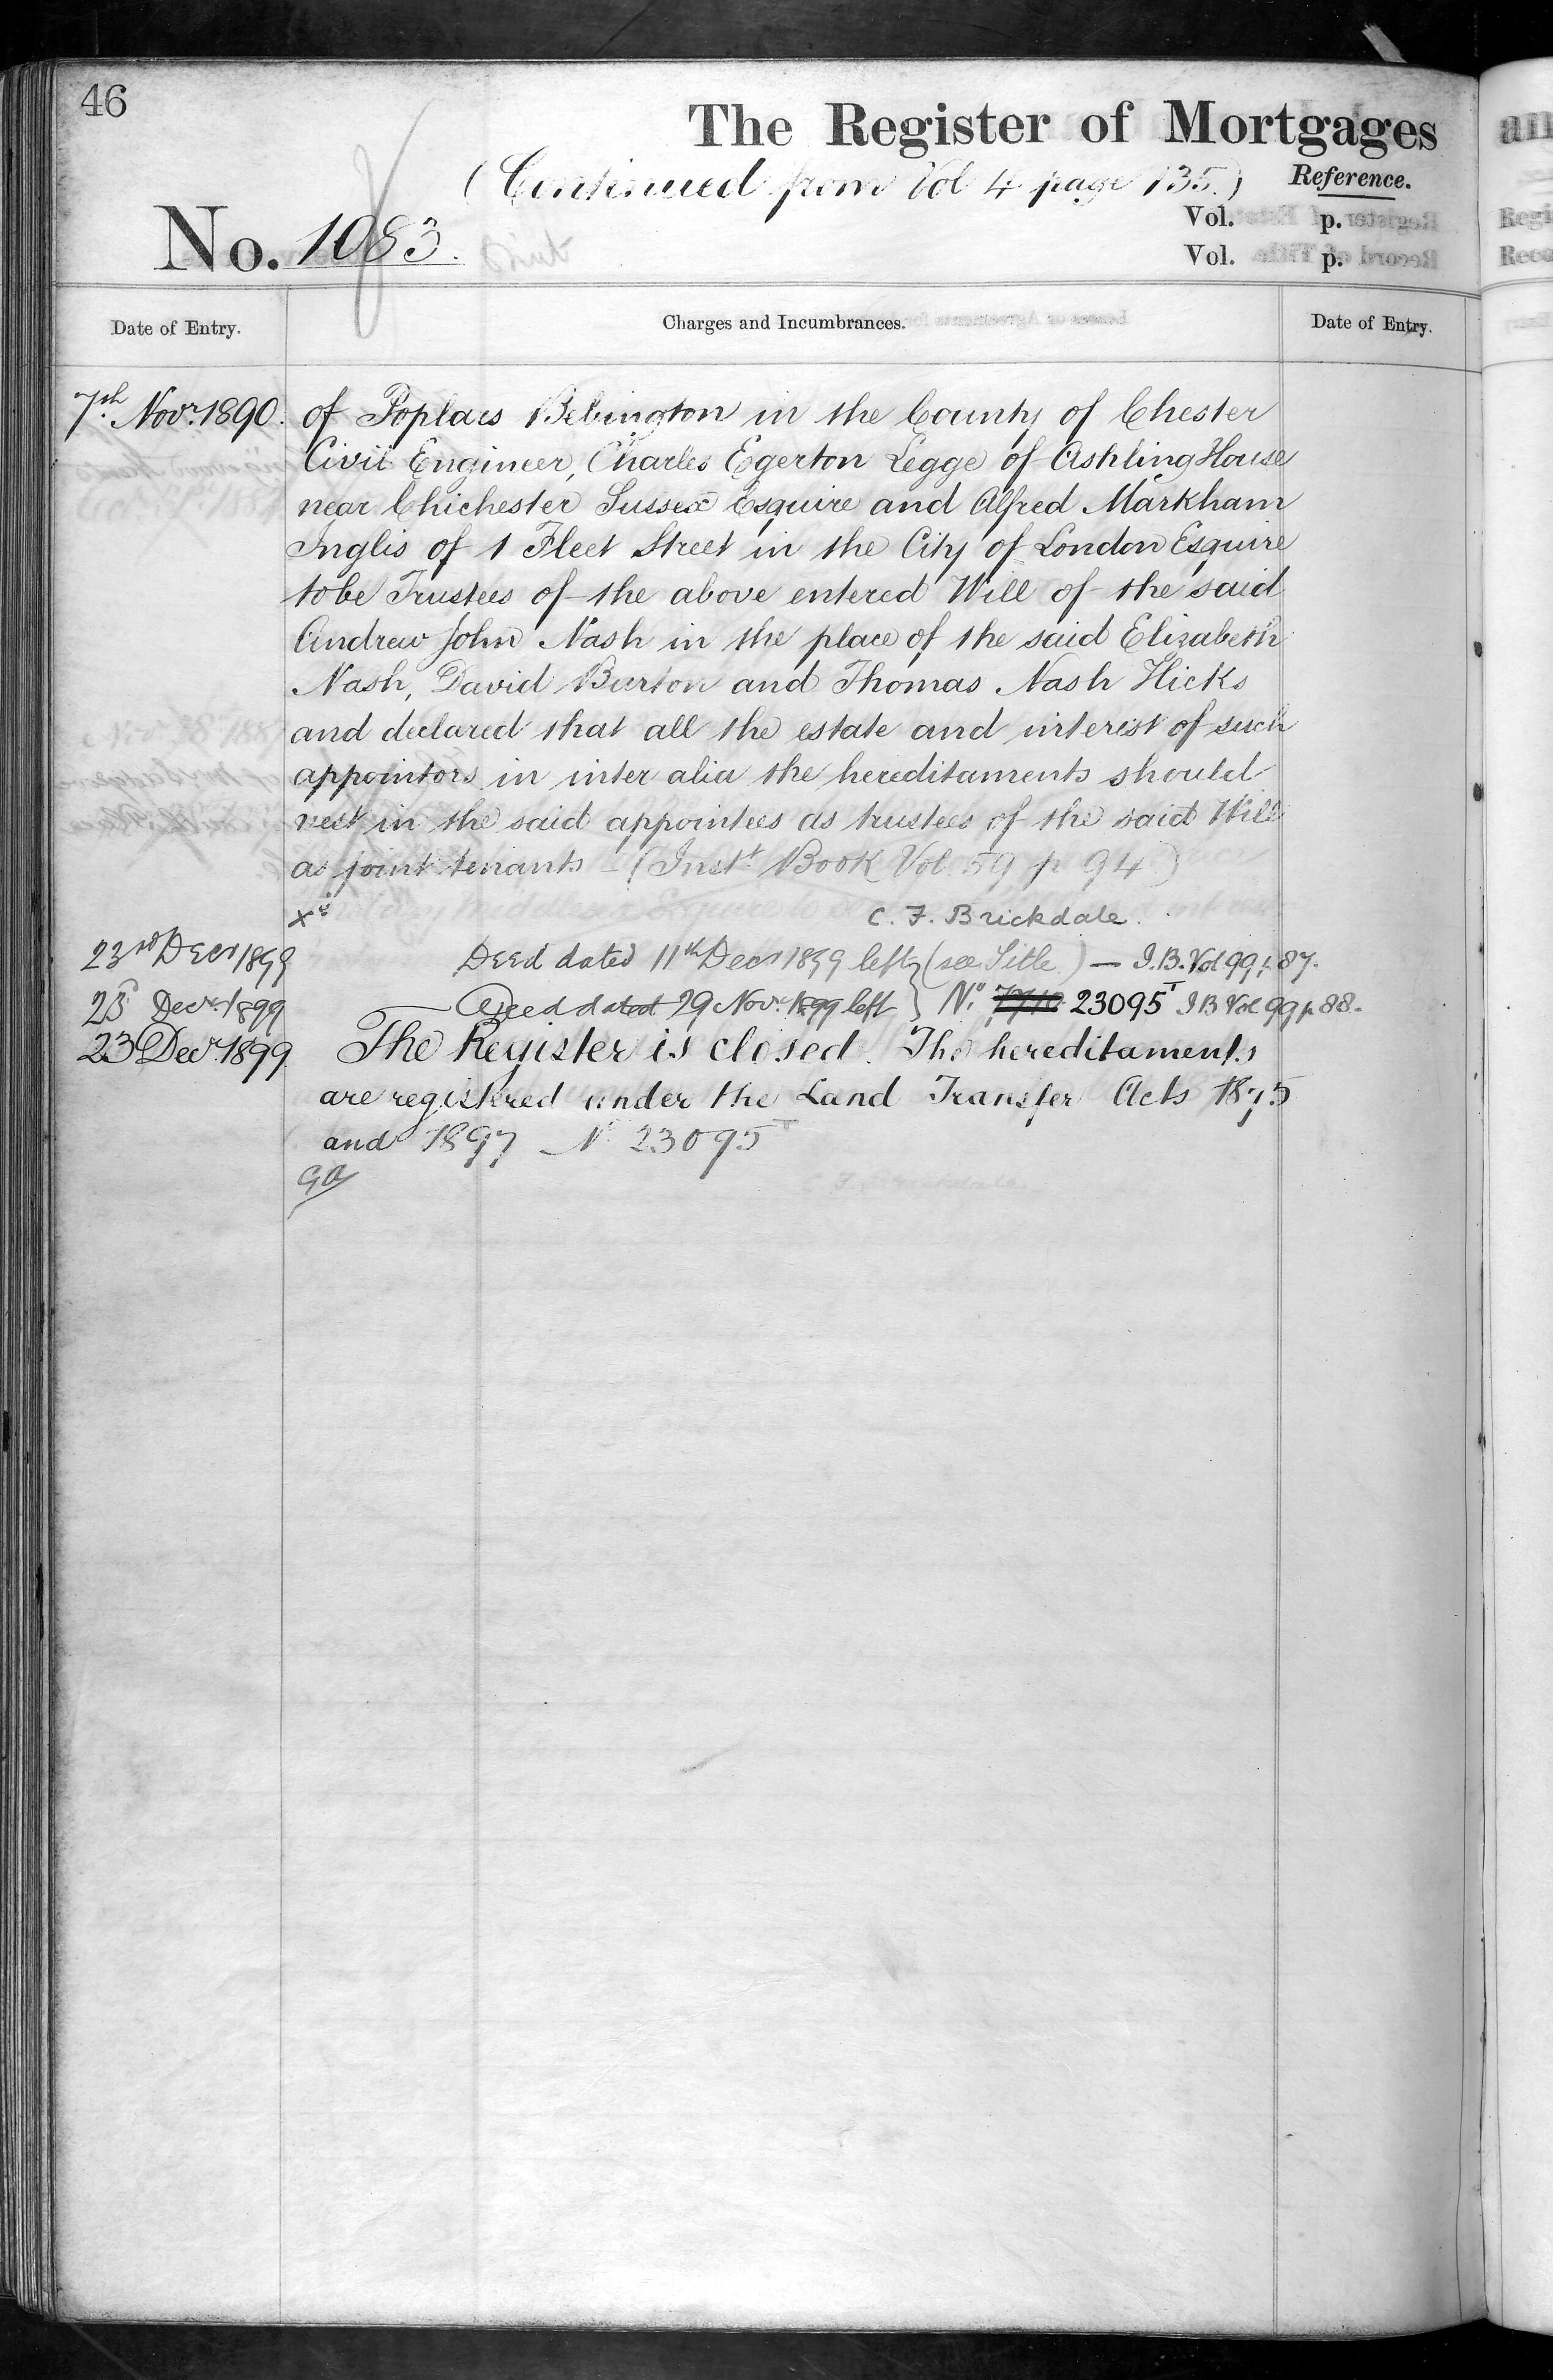 46
The Register of Mortgages
(Continued from Vol 4 page 135.)
Reference.
No. 1083.
Vol. p.
Vol. p.
Date of Entry.
Charges and Incumbrances.
Date of Entry.
7th Novr. 1890. of Poplars Bebington in the County of Chester
Civil Engineer, Charles Egerton Legge of Ashling House
near Chichester Sussex Esquire and Alfred Markham
Inglis of 1 Fleet Street in the City of London Esquire
to be Trustees of the above entered Will of the said
Andrew John Nash in the place of the said Elizabeth
Nash, David Burton and Thomas Nash Hicks
and declared that all the estate and interest of such
appointors in inter alia the hereditaments should
vest in the said appointees as trustees of the said Will
as joint tenants – (Instt. Book Vol 59 p 94)
C. F. Brickdale.
23rd Decr 1899 Deed dated 11th Decr 1899 left (see Title) — I.B. Vol 99 p. 87.
23d Decr. 1899 Deed dated 29 Novr. 1899 left } No. 23095T I B Vol 99 p. 88.
23 Decr. 1899. The Register is closed. The hereditaments
are registered under the Land Transfer Acts 1875
and 1897 No 23095T
C F Brickdale